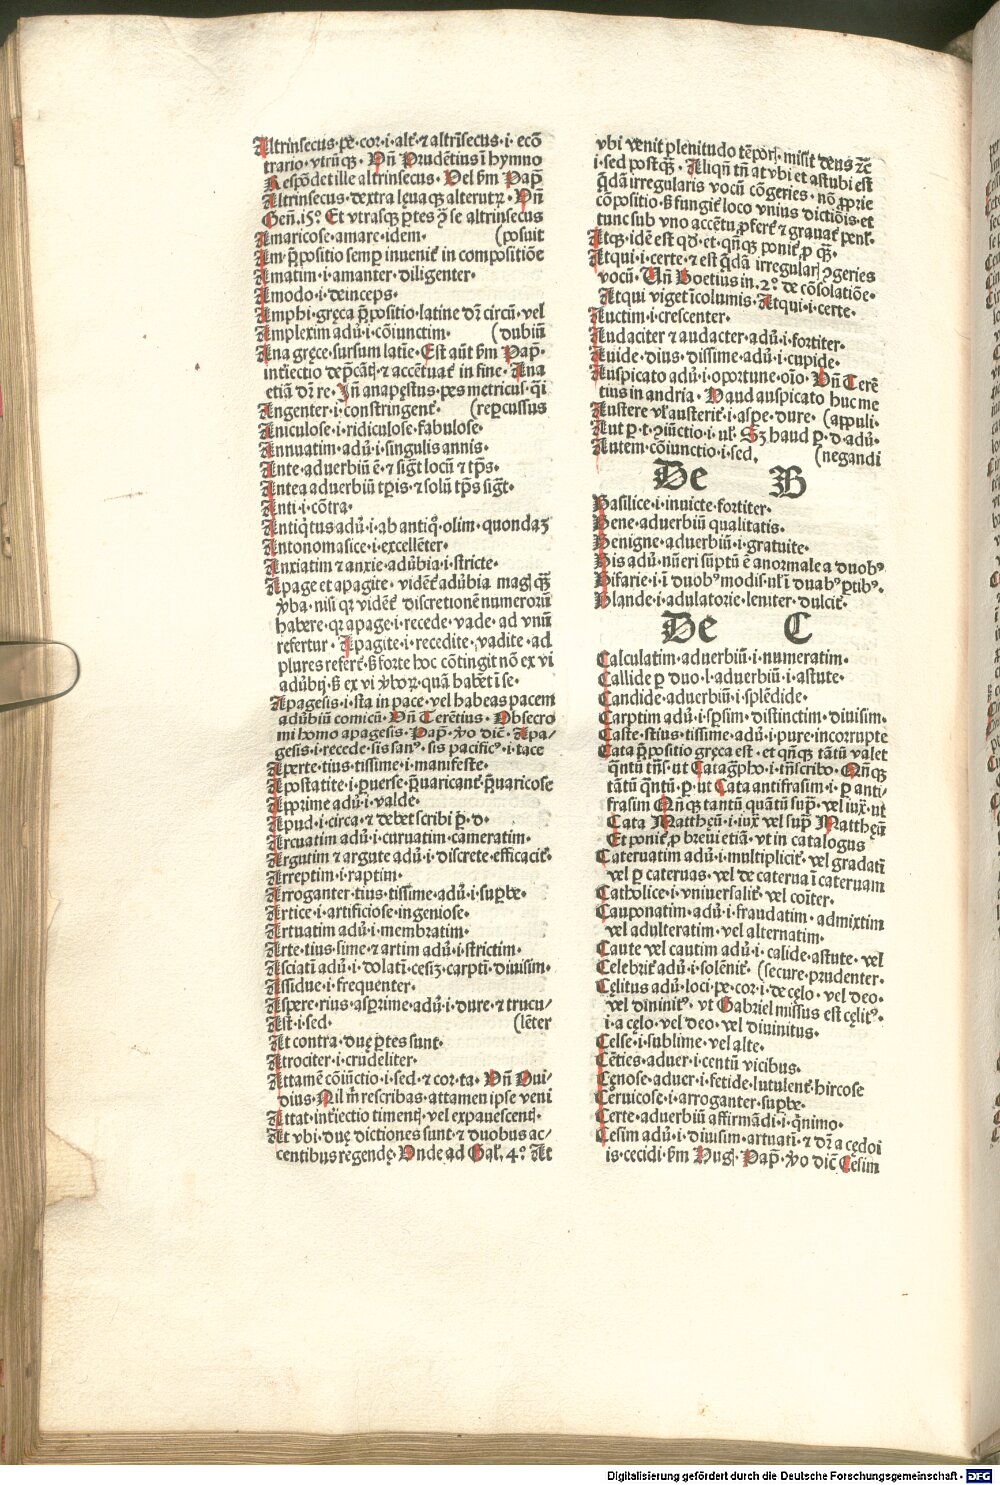 Altrinsecus·pe·cor·i·alt̉·⁊ altrĩsecus·i·ecõ
trario·vtrũqꝫ· Vñ Prudẽtius ĩ hymno
Respõdet ille altrinsecus· Vel ẜm Pap̃
Altrinsecus·dextra lęuaqꝫ alterutꝝ· Vñ
Geñ.15.° Et vtrasqꝫ ꝑtes q̃ se altrinsecus
Amaricose·amare·idem· (posuit
Am·p̃positio semꝑ inuenit̉ in compositiõe
Amatim·i·amanter·diligenter·
Amodo·i·deinceps·
Amphi·gręca p̃positio·latine dr̃ circũ·vel
Amplexim adũ·i·cõiunctim· (dubiũ
Ana gręce·sursum latĩe·Est aũt ẜm Pap̃·
int̉iectio dep̃cãtꝭ·⁊ accẽtuat̉ in fine· Ana
etiã dr̃ re· Jñ anapęstus·pes metricus·q̃i
Angenter·i·constringent̉· (reꝑcussus
Aniculose·i·ridiculose·fabulose·
Annuatim·adũ·i·singulis annis·
Ante·aduerbiũ ẽ·⁊ sig̃t locũ ⁊ tp̃s·
Antea aduerbiũ tp̃is·⁊ solũ tp̃s sig̃t·
Anti·i·cõtra·
Antiq̃tus adũ·i·ab antiq̃·olim·quondaꝫ
Antonomasice·i·excellẽter·
Anxiatim ⁊ anxie·adũbia·i·stricte·
Apage et apagite·vident̉ adũbia magꝭ qꝫ̃
ṽba·nisi qꝛ vident̉ discretionẽ numerorũ
habere·qꝛ apage·i·recede·vade·ad vnũ
refertur· Apagite·i·recedite·vadite·ad
plures refert̉·ẜ forte hoc cõtingit nõ ex vi
adũbij·ẜ ex vi ṽboꝝ·quã habẽt ĩ se·
Apagesis·i·sta in pace·vel habeas pacem
adũbiũ comicũ·Vñ Terẽtius·Obsecro
mi homo apagesis·Pap̃·ṽo dic̃·Apa-
gesis·i·recede·sis sanꝰ·sis pacificꝰ·i·tace
Aperte·tius·tissime·i·manifeste·
Apostatite·i·ꝑuerse·p̃uaricant̉·p̃uaricose
Apprime adũ·i·valde·
Apud·i·circa·⁊ debet scribi ꝑ·d·
Arcuatim adũ·i·curuatim·cameratim·
Argutim ⁊ argute adũ·i·discrete·efficacit̉·
Arreptim·i·raptim·
Arroganter·tius·tissime·adũ·i·suꝑbe·
Artice·i·artificiose·ingeniose·
Artuatim adũ·i·membratim·
Arte·tius·sime·⁊ artim adũ·i·strictim·
Asciatĩ adũ·i·dolatĩ·cesiꝫ·carptĩ·diuisim·
Assidue·i·frequenter·
Aspere·rius·asꝑrime·adũ·i·dure·⁊ trucu/
Ast·i·sed· (lẽter
At contra·duę ꝑtes sunt·
Atrociter·i·crudeliter·
Attamẽ cõiũctio·i·sed·⁊ cor·ta· Vñ Oui/
dius·Nil m̃ rescribas·attamen ipse veni
Attat·int̉iectio timentꝭ·vel expauescentꝭ·
At vbi·duę dictiones sunt·⁊ duobus ac/
centibus regendę·Vnde ad Gal̉.4.° At
vbi venit plenitudo tẽporꝭ·misit deus ⁊c̃
i·sed postqꝫ̃· Aliqñ tñ at vbi et astubi est
q̃dã irregularis vocũ cõgeries·nõ ꝓprie
cõpositio·ẜ fungit̉ loco vnius dictiõis·et
tunc sub vno accẽtu ꝓfert̉·⁊ grauat̉ penł·
Atqꝫ·idẽ est qđ·et·qñqꝫ ponit̉ ꝓ qꝫ̃·
Atqui·i·certe·⁊ est q̃dã irregularꝭ ꝯgeries
vocũ· Vñ Boetius in.2.° de cõsolatiõe·
Atqui viget ĩcolumis·Atqui·i·certe·
Auctim·i·crescenter·
Audaciter ⁊ audacter·adũ·i·fortiter·
Auide·dius·dissime·adũ·i·cupide·
Auspicato adũ·i·oportune·oĩo· Vñ Terẽ
tius in andria· Haud auspicato huc me
Austere vł austerit̉·i·aspe·dure· (appuli·
Aut ꝑ·t·ꝯiũctio·i·uł· Sꝫ haud ꝑ·d·adũ·
Autem·cõiunctio·i·sed· (negandi
De B
Basilice·i·inuicte·fortiter·
Bene·aduerbiũ qualitatis·
Benigne·aduerbiũ·i·gratuite·
Bis adũ·nũeri sũptũ ẽ anormale a duobꝰ
Bifarie·i·ĩ duobꝰ modis·uł ĩ duabꝰ ꝑtibꝰ·
Blande·i·adulatorie·leniter·dulcit̉·
De C
Calculatim·aduerbiũ·i·numeratim·
Callide ꝑ duo·l·aduerbiũ·i·astute·
Candide·aduerbiũ·i·splẽdide·
Carptim adũ·i·sꝑsim·distinctim·diuisim·
Caste·stius·tissime·adũ·i·pure·incorrupte
Cata p̃positio gręca est·et qñqꝫ tãtũ valet
q̃ntũ tñs·ut Catagͣpho·i·tñscribo·Qñqꝫ
tãtũ q̃ntũ·ꝑ·ut Cata antifrasim·i·ꝑ anti/
frasim Qñqꝫ tantũ quãtũ sup̃·vel iux̃·ut
Cata Matthęũ·i·iux̃ vel sup̃ Matthęũ
Et ponit̉ ꝓ breui etiã·vt in catalogus
Cateruatim adũ·i·multiplicit̉·vel gradatĩ
vel ꝑ cateruas·vel de caterua ĩ cateruam
Catholice·i·vniuersalit̉·vel coĩter·
Cauponatim·adũ·i·fraudatim·admixtim
vel adulteratim·vel alternatim·
Caute vel cautim adũ·i·calide·astute·vel
Celebrit̉ adũ·i·solẽnit̉· (secure·prudenter·
Cęlitus adũ·loci·pe·cor·i·de cęlo·vel deo·
vel diuinitꝰ·vt Gabriel missus est cęlitꝰ·
i·a cęlo·vel deo·vel diuinitus·
Celse·i·sublime·vel alte·
Cẽties·aduer·i·centũ vicibus·
Cęnose·aduer·i·fetide·lutulent̉·hircose
Ceruicose·i·arroganter·suꝑbe·
Certe·aduerbiũ affirmãdi·i·q̃nimo·
Cesim adũ·i·diuisim·artuatĩ·⁊ dr̃ a cędo·i
is·cecidi·ẜm Hugꝭ·Pap̃·ṽo dic̃ Cesim
Digitalisierung gefördert durch die Deutsche Forschungsgemeinschaft · DFG